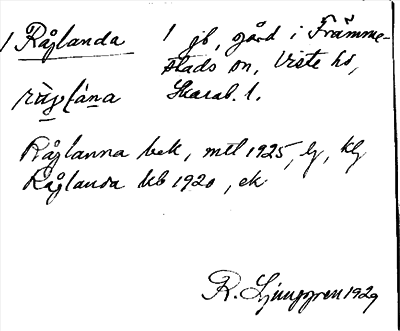 1 Råglanda 1 jb, gård i Främme-
stads sn, Viste hd,
Skarab. l.
Råglanna bek, mtl 1925, lg, klg
Råglanda kb 1920, ek
R. Ljunggren 1929